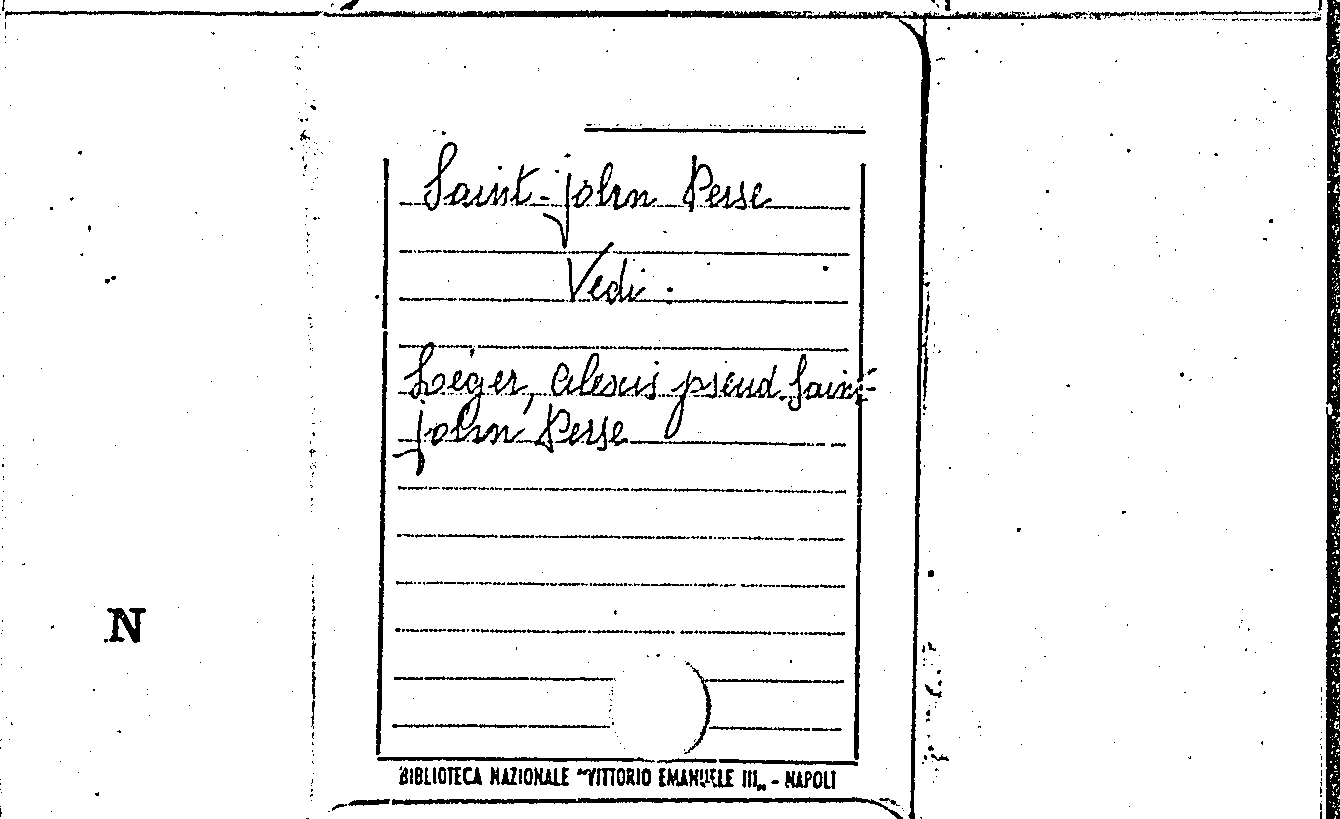 Saint-John Perse
Vedi:
Léger, Alexis pseud. Saint-
John Perse
N
BIBLIOTECA NAZIONALE "VITTORIO EMANUELE III„ - NAPOLI